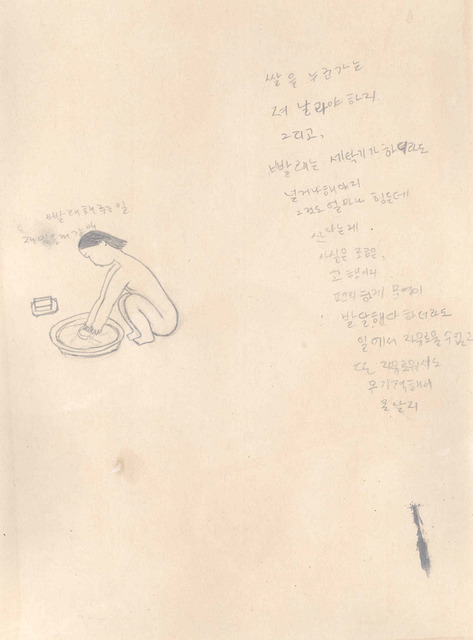 쌀을 누군가는
져 날라야 하리
그리고,
빨래는 세탁기가 하더라도
널거나 해야리
그것도 얼마나 힘든데
신나는데.
사실은 조금은,
고행이리
편리하게 문명이
발달했다 하더라도
일에서 자유로울 수 없고
또 자유로워서도
무기력해서
못 날리
빨래 해 주는 일